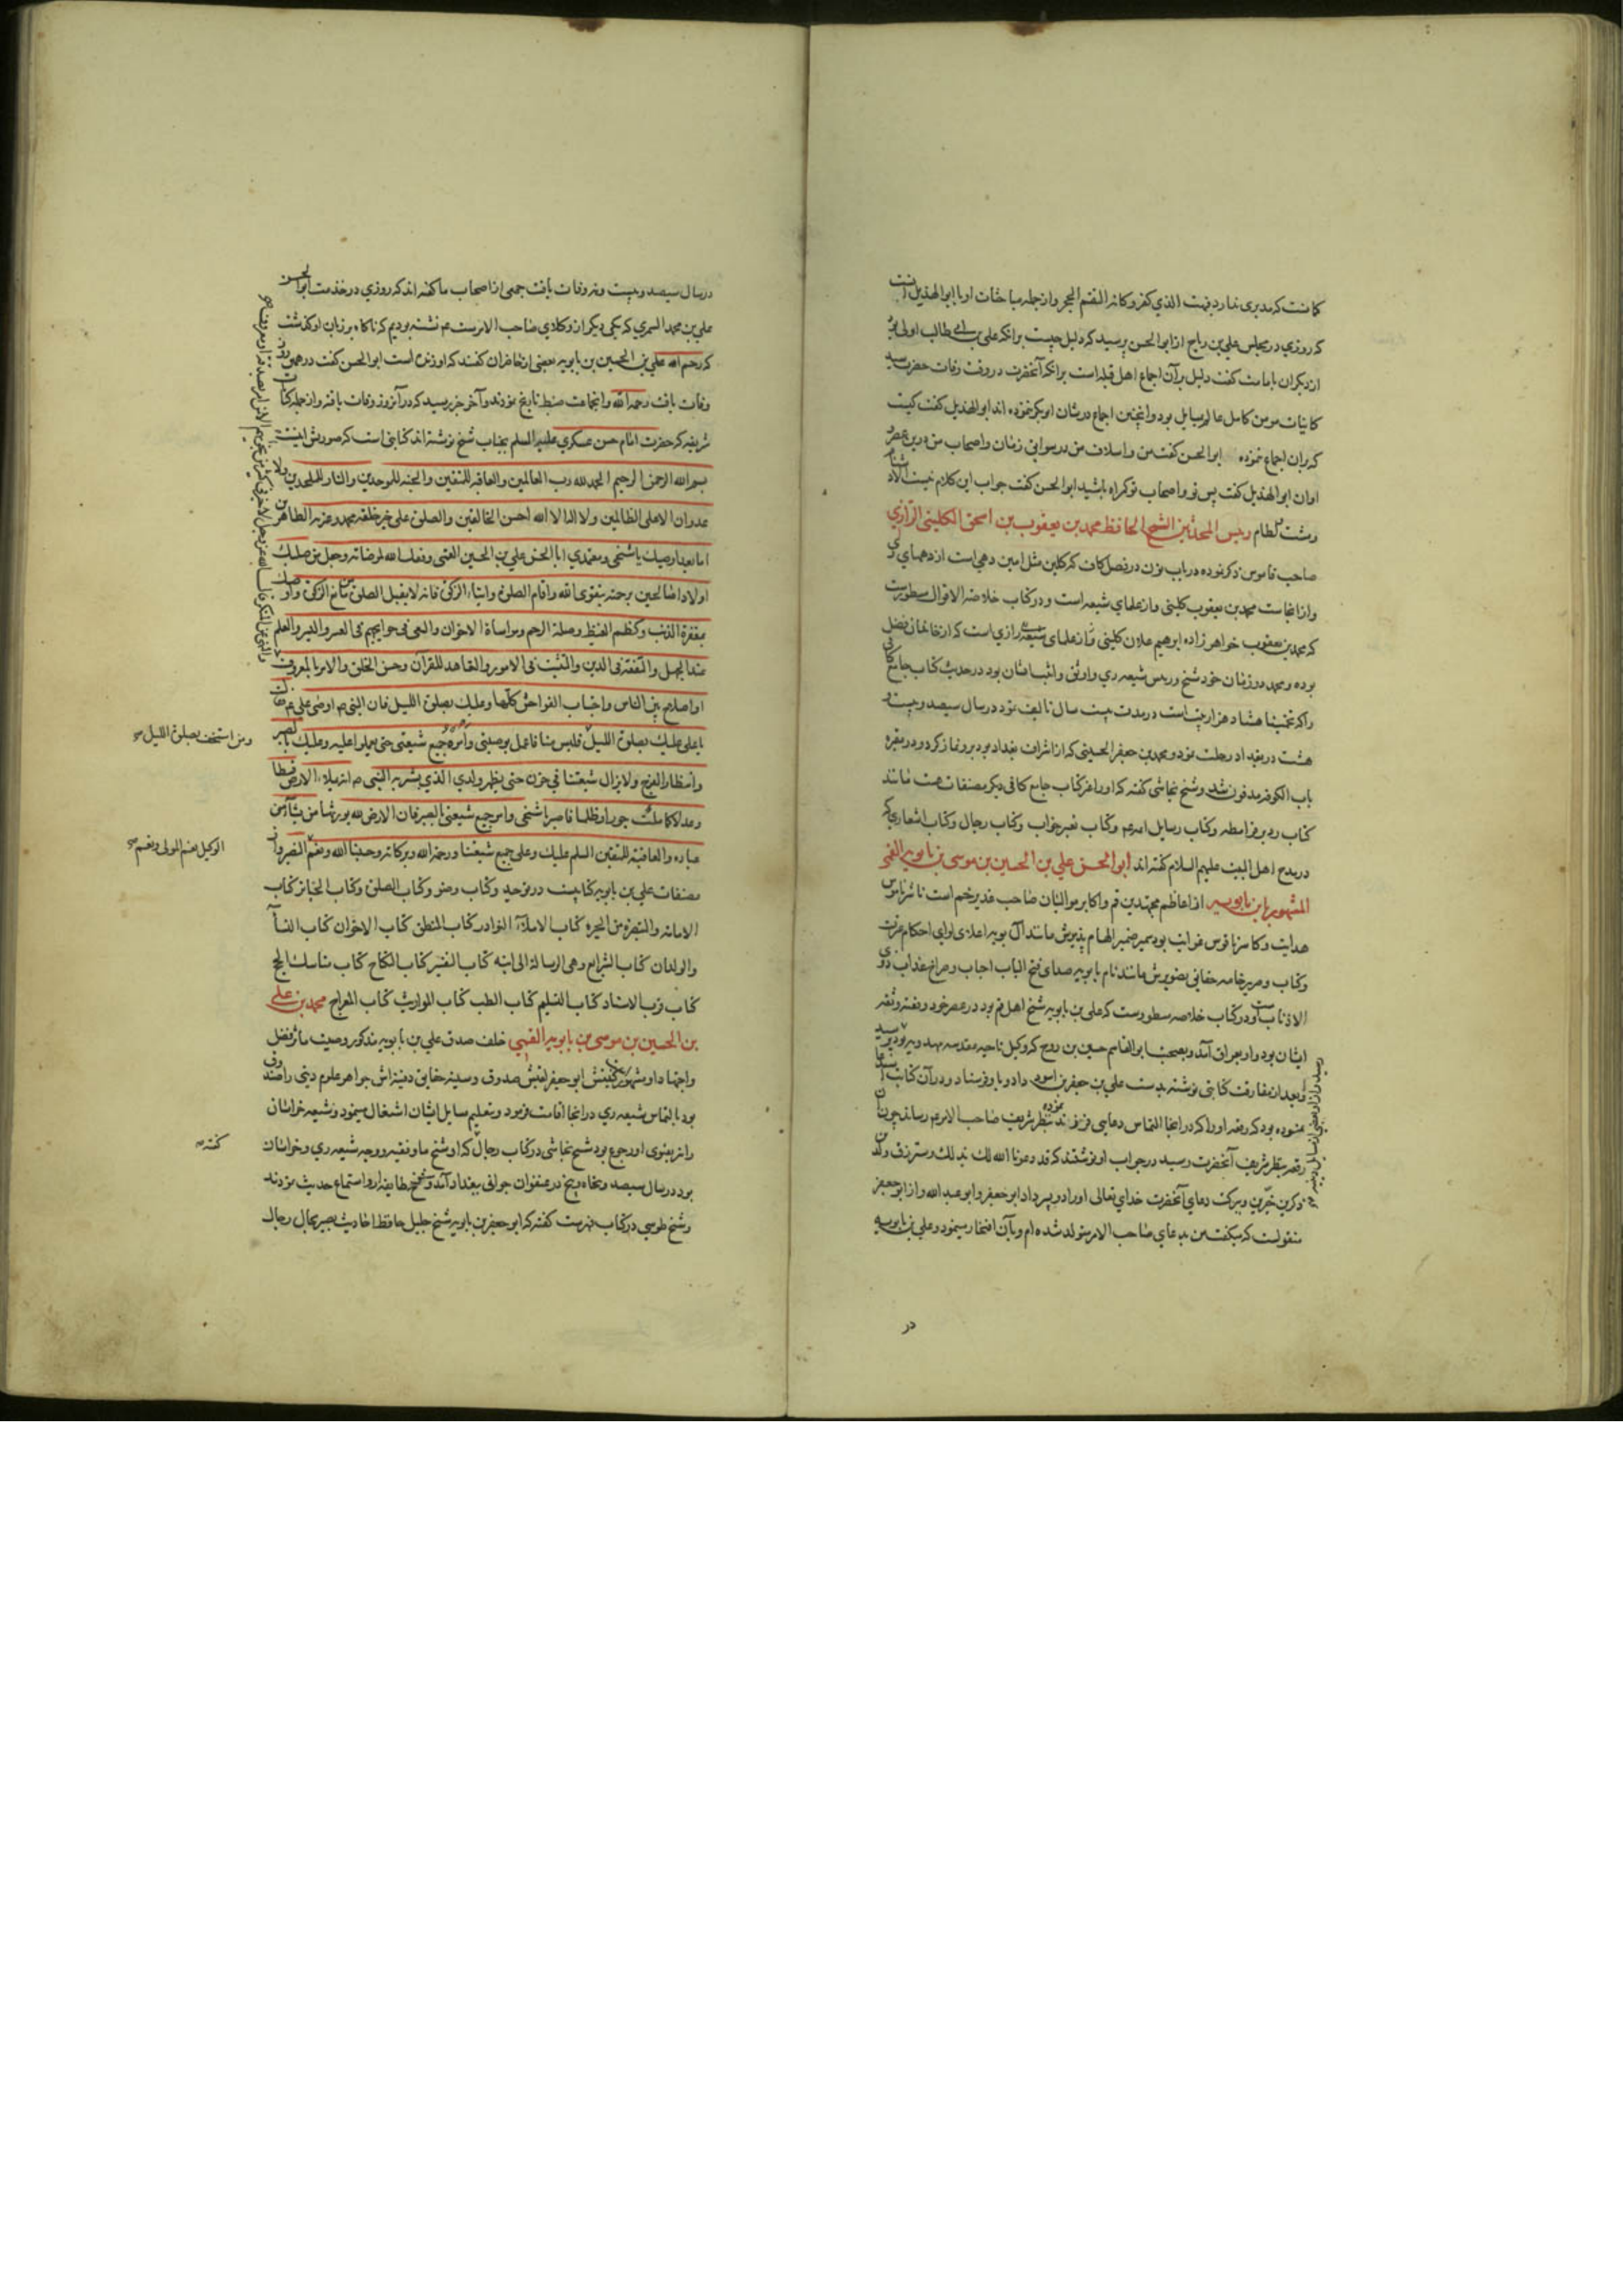 کانست که مدبری ندارد فبهت الذی کفر و کانه القم الحجر و از جمله مباحثات او با ابو الهذیل آنست
که روزی در مجلس علی بن رباح از ابو الحسن پرسید که دلیل چیست برانکه علی بن ابی طالب اولی بود
از دیگران بامامت گفت دلیل بر آن اجماع اهل قبله است برانکه آنحضرت در وقت وفات حضرت سید
کاینات مومن کامل عالم بود و اینچنین اجماع در شان ابوبکر ننموده اند ابو الهذیل گفت کیست
که بران اجماع ننموده ابو الحسن گفت من و اسلاف من در سوابق زمان و اصحاب من درین عصر
و اوان ابو الهذیل گفت پس تو و اصحاب تو گمراه باشید ابو الحسن گفت جواب این کلام نیست الا دشنام
و مشت لطام رییس المحدثین الشیخ الحافظ محمد بن یعقوب بن اسحق الکلینی الرازی
صاحب قاموس ذکر نموده در باب نون در فصل کاف که کلین مثل امین دهی است از دههای ری
و از انجاست محمد بن یعقوب کلینی و از علمای شیعه است و در کتاب خلاصة الاقوال مسطورست
که محمد بن یعقوب خواهرزاده ابراهیم علان کلینی و از علمای شیعه رازی است که از خاندان فضل
بوده و محمد در زمان خود شیخ و رییس شیعه ری و اوثق و اثبت ایشان بود در حدیث کتاب جامع کافی
را که تخمینا هشتاد هزار بیت است در مدت بیست سال تالیف نمود در سال سیصد و بیست و
هشت در بغداد رحلت نمود و محمد بن جعفر الحسینی که از اشراف بغداد بود برو نماز کرد و در مقبره
باب الکوفه مدفون شد و شیخ نجاشی گفته که او را غیر کتاب جامع کافی دیگر مصنفات هست مانند
کتاب رد بر قرامطه و کتاب رسایل ائمه ع م و کتاب تعبیر خواب و کتاب رجال و کتاب اشعاری که
در مدح اهل البیت علیهم السلام گفته اند ابو الحسن علی بن الحسین بن موسی بن بابویه القمی
المشهور بابن بابویه از اعاظم مجتهدین قم و اکابر موالیان صاحب غدیر خم است
هدایت و کاسر ناقوس غوایت بود ضمیر الهام پذیرش مانند آل بویه اعلای لوای احکام
کتاب و صریر خامه حقانی تصویرش مانند نام بابویه صدای فتح الباب
الاذناب است و در کتاب خلاصه مسطورست که علی بن بابویه شیخ اهل قم بود در عصر خود و فقیه و ثقه
ایشان بود و او بعراق آمد و بصحبت ابو القاسم حسین بن روح که وکیل ناحیه مقدسه مهدویه بود رسید
و بعد از مفارقت کتابی نوشته بدست علی بن جعفر بن اسود داد و باو فرستاد و در آن کتاب استدعا
نموده بود که رقعه او را که در انجا التماس دعایی فرزند نموده بنظر شریف صاحب الامر ع م رساند چون
رقعه بنظر شریف آنحضرت رسید در جواب او نوشتند که قد دعونا الله لک بذلک و سترزق ولدین
ذکرین خیرین و ببرکت دعای آنحضرت خدای تعالی او را دو پسر داد ابو جعفر و ابو عبد الله و از ابو جعفر
منقولست که میگفت من بدعای صاحب الامر متولد شده ام و بآن افتخار مینمود و علی بن بابویه
در
در سال سیصد و بیست و نه وفات یافت جمعی از اصحاب ما گفته اند که روزی در خدمت ابو الحسن
علی بن محمد السمری که یکی دیگر از وکلای صاحب الامرست ع م نشسته بودیم که ناگاه بر زبان او گذشت
که رحم الله علی بن الحسین بن بابویه بعضی از حاضران گفتند که او زنده است ابو الحسن گفت در همین روز
وفات یافت رحمه الله و انجماعت ضبط تاریخ نمودند و آخر خبر رسید که در آنروز وفات یافته و از جمله کتابات
شریفه که حضرت امام حسن عسکری علیه السلم بجناب شیخ نوشته اند کتابتی است که صورتش اینست
بسم الله الرحمن الرحیم الحمد لله رب العالمین و العاقبة للمتقین و الجنة للموحدین و النار للملحدین و لا
عدوان الا علی الظالمین و لا اله الا الله احسن الخالقین و الصلوة علی خیر خلقه محمد و عترته الطاهرین
اما بعد اوصیک یا شیخی و معتمدی ابا الحسن علی بن الحسین القمی وفقک الله لمرضاته و جعل من صلبک
اولادا صالحین برحمته بتقوی الله و اقام الصلوة و ایتاء الزکوة فانه لا یقبل الصلوة من مانع الزکوة و اوصیک
بمغفرة الذنب و کظم الغیظ و صلة الرحم و مواساة الاخوان و السعی فی حوایجهم فی العسر و الیسر و الحلم
عند الجهل و التفقه فی الدین و التثبت فی الامور و التعاهد للقرآن و حسن الخلق و الامر بالمعروف
او اصلاح بین الناس و اجتناب الفواحش کلها و علیک بصلوة اللیل فان النبی ص اوصی علی ع م فقال
یا علی علیک بصلوة اللیل فلیس منا فاعمل بوصیتی و أمر جمیع شیعتی حتی یعملوا علیه و علیک بالصبر
و انتظار الفرج و لا یزال شیعتنا فی حزن حتی یظهر ولدی الذی بشر به النبی ص انه یملاء الارض قسطا
و عدلا کما ملئت جورا و ظلما فاصبر یا شیخی و امر جمیع شیعتی بالصبر فان الارض لله یورثها من یشاء من
عباده و العاقبة للمتقین السلم علیک و علی جمیع شیعتنا و رحمة الله و برکاته و حسبنا الله و نعم النصیر و از
مصنفات علی بن بابویه کتابیست در توحید و کتاب وضو و کتاب الصلوة و کتاب الجنایز کتاب
الامامة و التبصرة من الحیرة کتاب الاملاء النوادر کتاب المنطق کتاب الاخوان کتاب النساء
و الولدان کتاب الشرایع و هی الرسالة الی ابنه کتاب التفسیر کتاب النکاح کتاب مناسک الحج
کتاب قرب الاسناد کتاب التسلیم کتاب الطب کتاب المواریث کتاب المعراج محمد بن علی
بن الحسین بن موسی بن بابویه القمی خلف صدق علی بن بابویه مذکور و صیت مآثر فضل
و اجتهاد او مشهور کنیتش ابو جعفر لقبش صدوق و سینه حقایق دفینه اش جواهر علوم دینی را صندوق
بود بالتماس شیعه ری در انجا اقامت فرمود و بتعلیم مسایل ایشان اشتغال مینمود و شیعه خراسان
را نیز بفتوی او رجوع بود شیخ نجاشی در کتاب رجال که او شیخ ما و فقیه و وجه شیعه ری و خراسان
بود در سال سیصد و پنجاه و پنج در عنفوان جوانی ببغداد آمد و شیوخ طایفه ازو استماع حدیث نمودند
و شیخ طوسی در کتاب فهرست گفته که ابو جعفر بن بابویه شیخ جلیل حافظ احادیث بصیر بحال رجال
و من استخف بصلوة اللیل
الوکیل نعم المولی و نعم
گفته